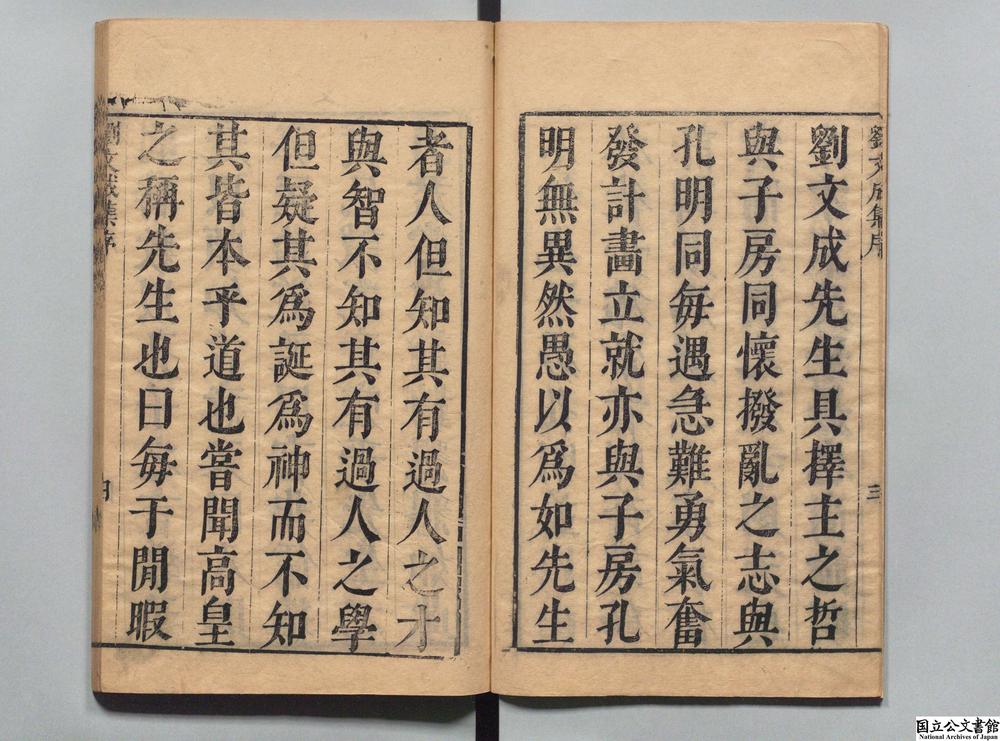 劉文成集序
三
劉文成先生具擇主之哲
與子房同懷撥亂之志與
孔明同每遇急難勇氣奮
發計畫立就亦與子房孔
明無異然愚以爲如先生
者人但知其有過人之才
與智不知其有過人之學
但疑其爲誕爲神而不知
其皆本乎道也嘗聞高皇
之稱先生也曰每于閒暇
劉文成集序
四
国立公文書館
National Archives of Japan